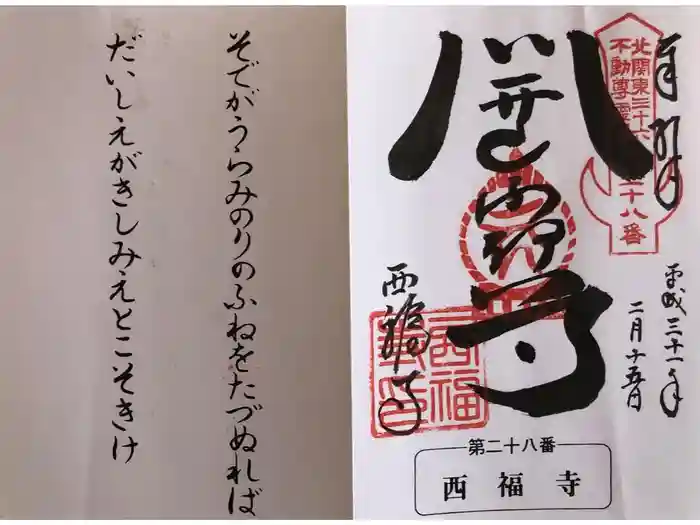 そでがうらみのりのふねをたづぬれば
だいしえがきしみえとこそきけ
奉拝
北関東三十六
不動尊霊
二十八番
平成三十一年
二月十五日
西福寺
第二十八番
西福寺